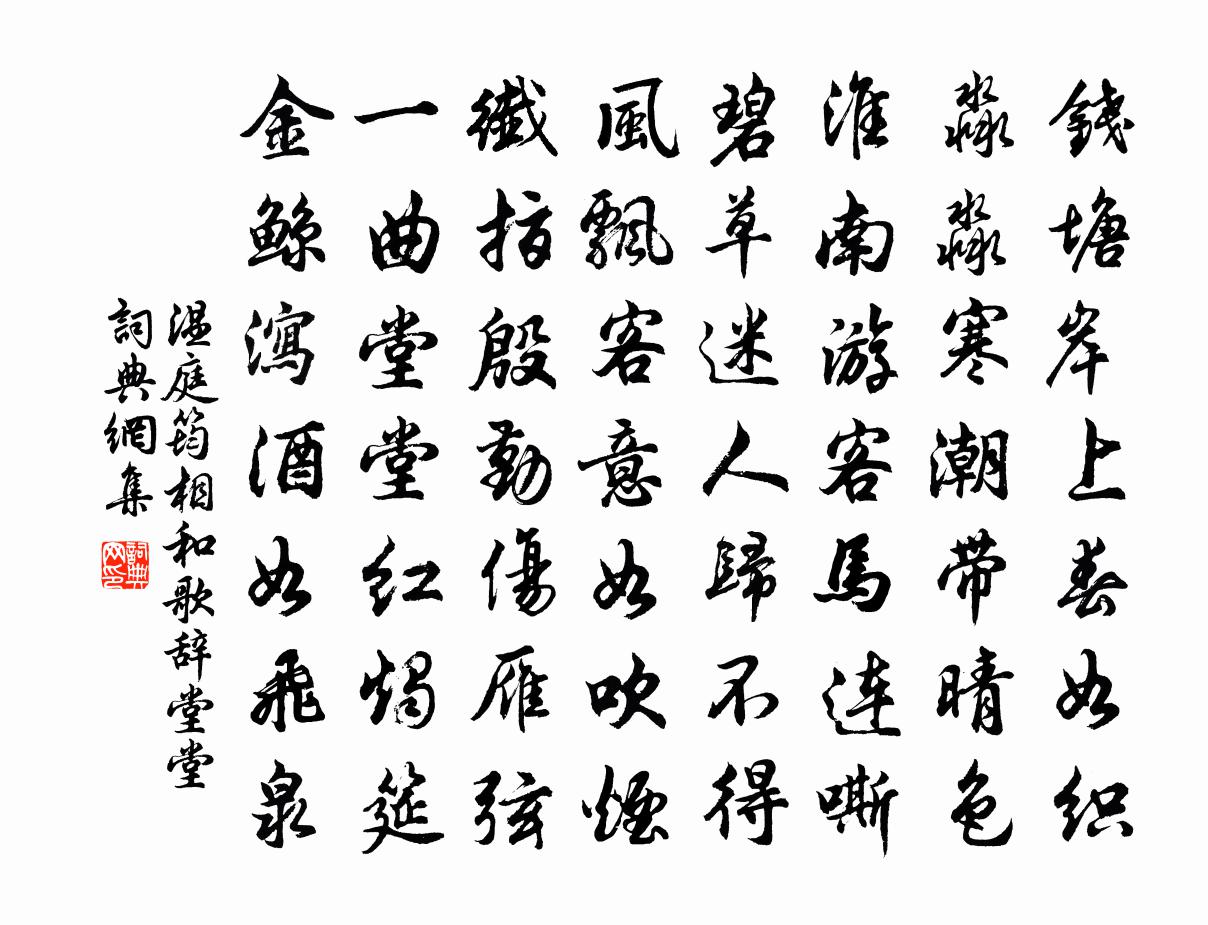 錢塘岸上春如织
淼淼寒潮带晴色
淮南游客馬连嘶
碧草迷人歸不得
風飄客意如吹煙
纖指殷勤傷雁弦
一曲堂堂红燭筵
金鲸瀉酒如飛泉
温庭筠相和歌辞堂堂
詞典網集
詞典网印